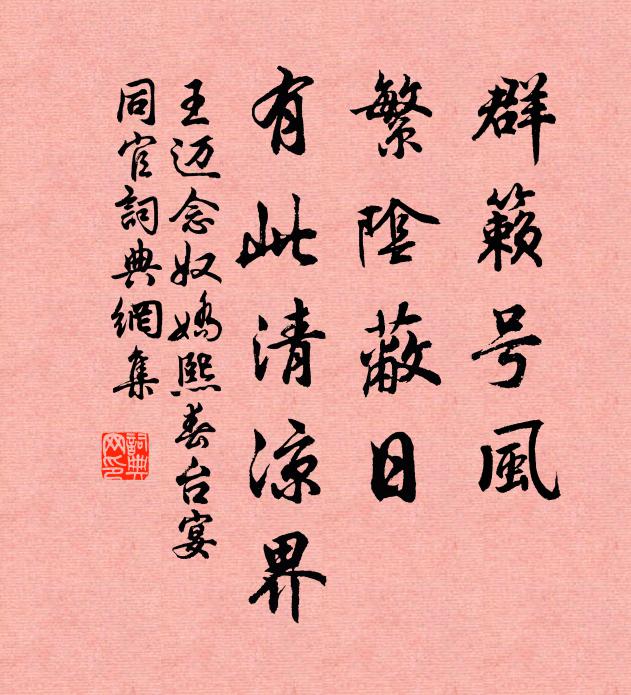 群籟号風
繁陰蔽日
有此清涼界
王迈念奴嬌熙春台宴
同官詞典網集
詞典
网印